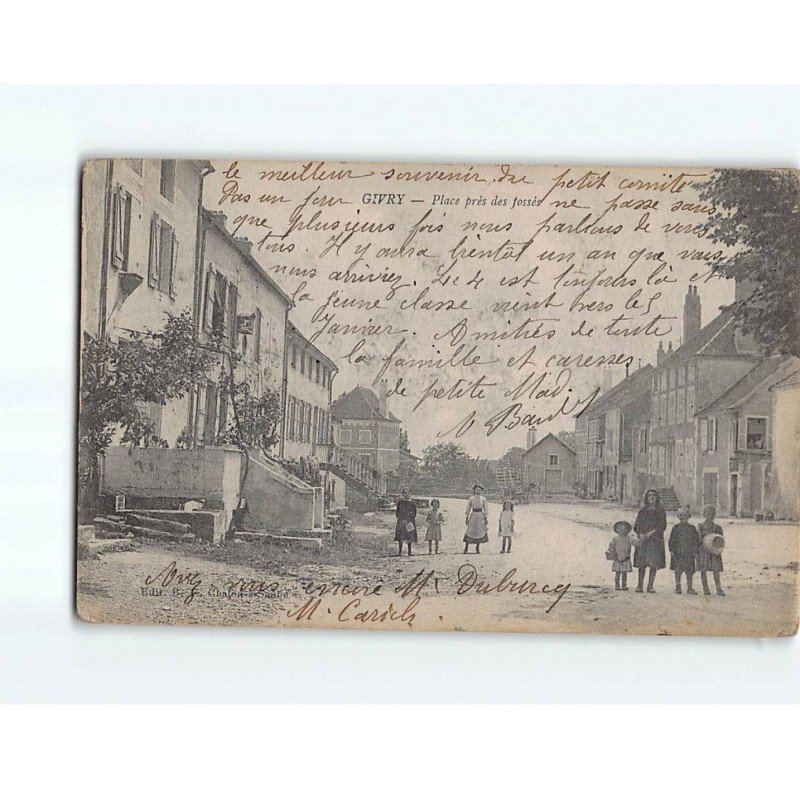 le meilleur souvenir du petit comité
GIVRY — Place près des fossés
Pas un jour ne passe sans
que plusieurs fois nous parlons de vous
tous. Il y aura bientôt un an que vous
nous arriviez. 4 est toujours là et
la jeune classe vient vers les
Janvier. Amitiés de toute
la famille et caresses
de petite Mad.
Avez vous encore Mr Dubureq
Edit. B. F. Chalon-s-Saône
M. Carich